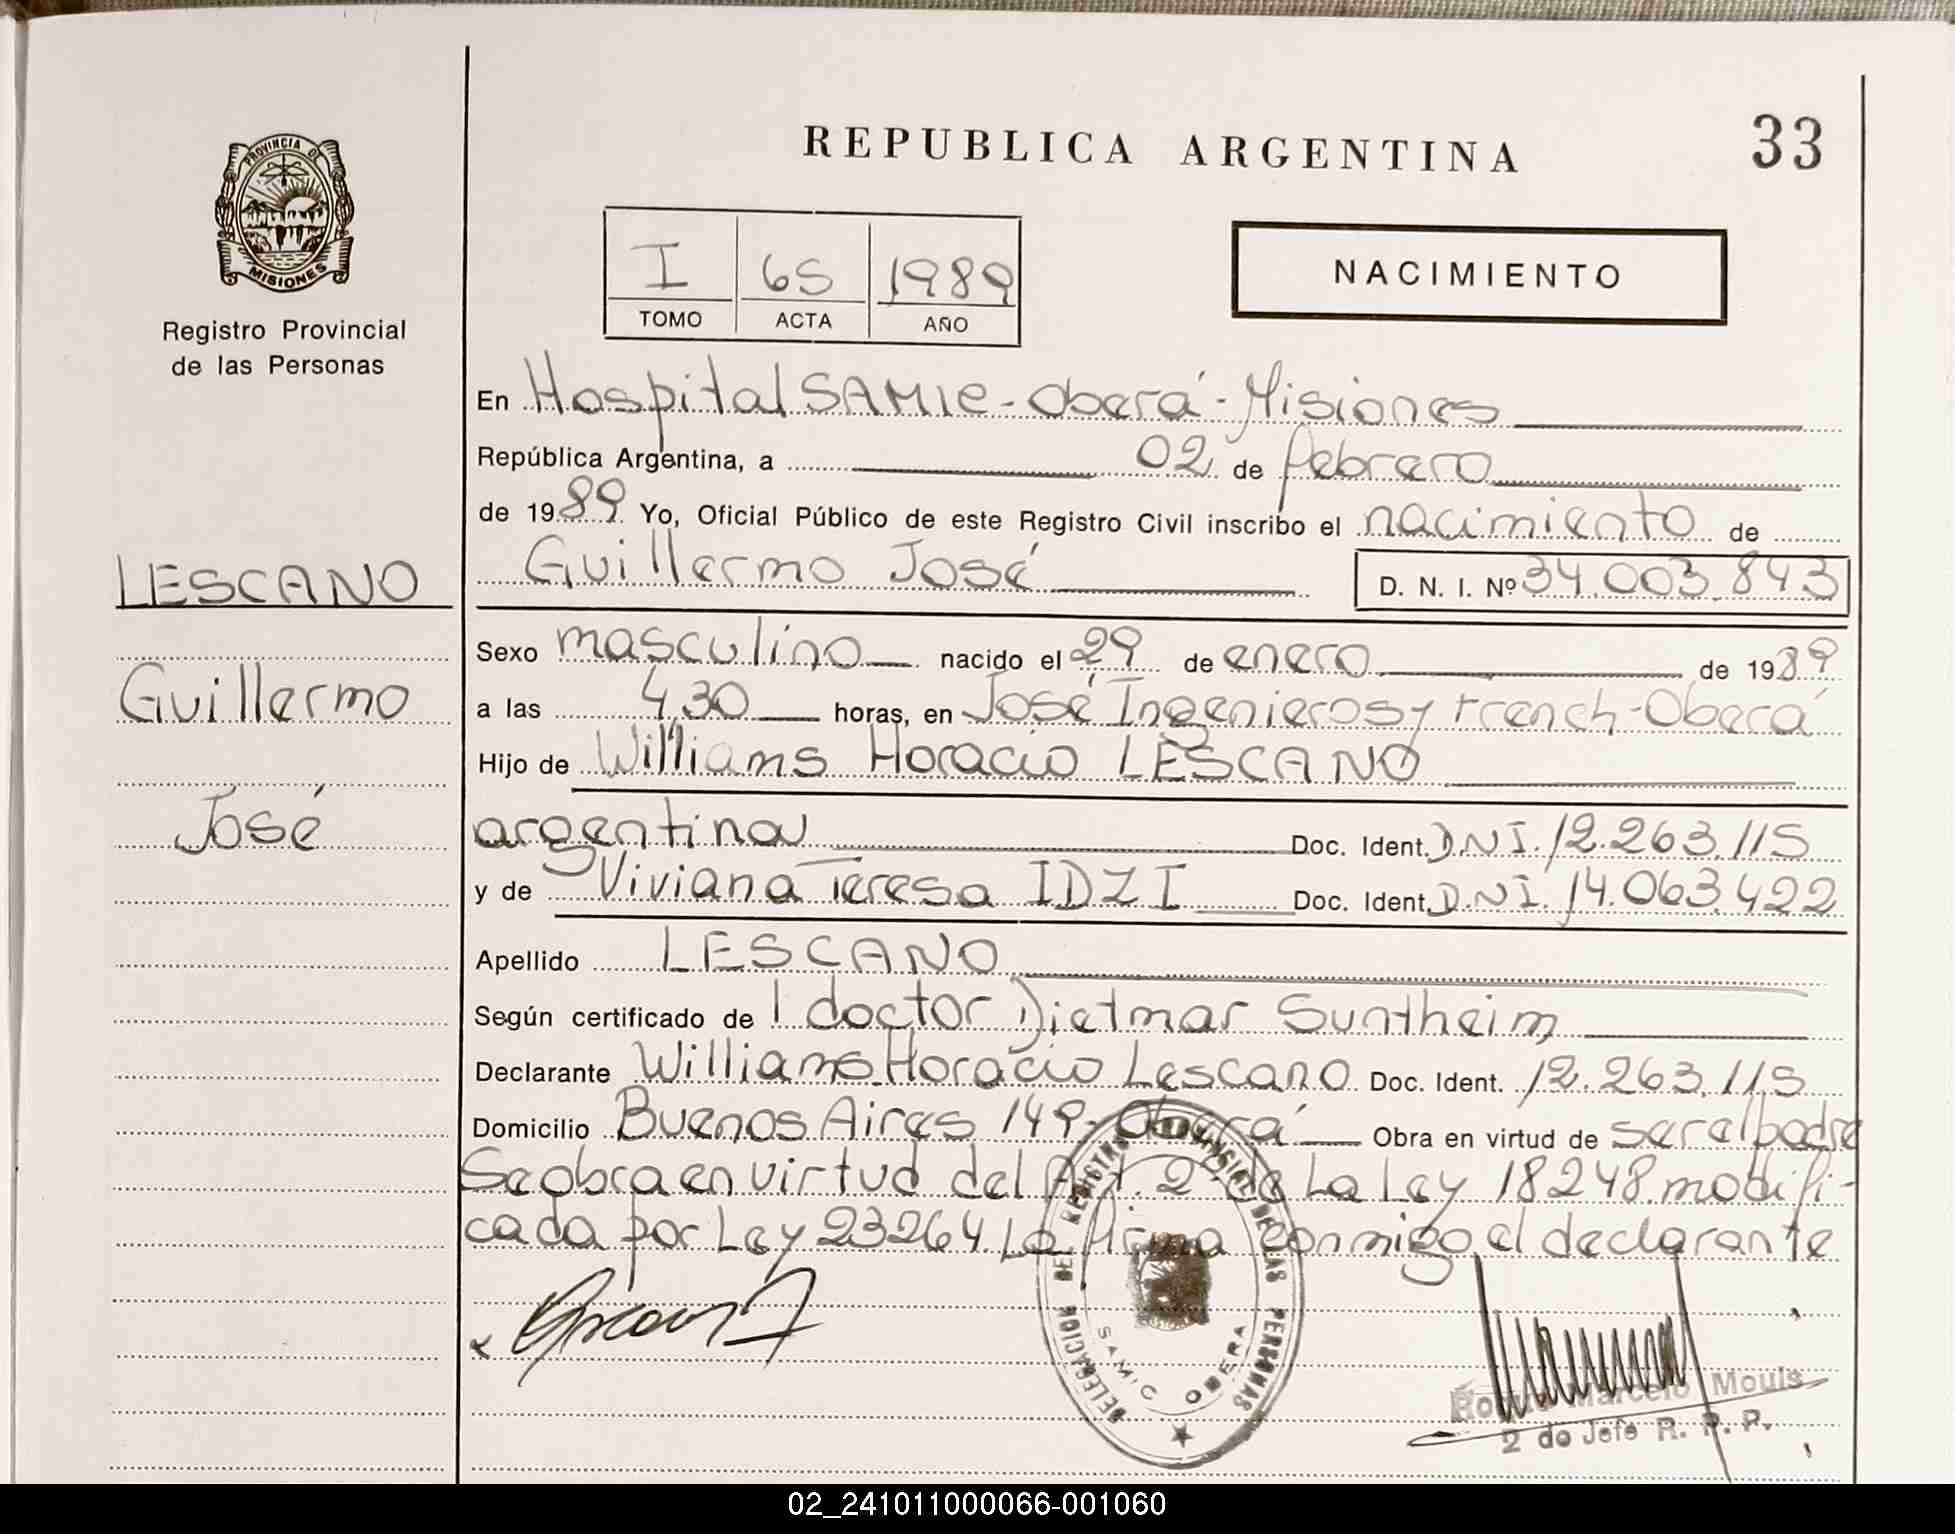 REPUBLICA ARGENTINA
33
PROVINCIA DE
MISIONES
Registro Provincial
de las Personas
I 65 1989
TOMO ACTA AÑO
NACIMIENTO
En Hospital SAMIC - Oberá - Misiones
República Argentina, a 02 de febrero
de 1989 Yo, Oficial Público de este Registro Civil inscribo el nacimiento de
Guillermo José D. N. I. Nº 34.003.843
LESCANO
Guillermo
José
Sexo masculino nacido el 29 de enero de 1989
a las 4,30 horas, en José Ingenieros y French - Oberá
Hijo de Williams Horacio LESCANO
argentina Doc. Ident. D.N.I. 12.263.115
y de Viviana Teresa IDZI Doc. Ident. D.N.I. 14.063.422
Apellido LESCANO
Según certificado de l doctor Dietmar Suntheim
Declarante Williams Horacio Lescano Doc. Ident. 12.263.115
Domicilio Buenos Aires 149 - Oberá Obra en virtud de ser el padre
Se obra en virtud del Art. 2º de La Ley 18248 modifi-
cada por Ley 23264. La firma conmigo el declarante
DELEGACION DEL REGISTRO PROVINCIAL DE LAS PERSONAS
SAMIC OBERA
Marcelo Mouls
2 do Jefe R. P. P.
02_241011000066-001060